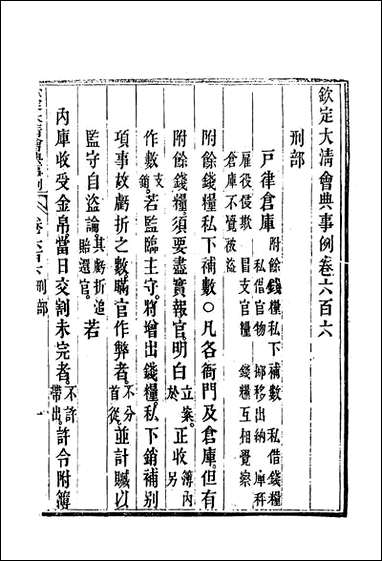 欽定大清會典事例卷六百六
刑部
戶律倉庫 附餘錢糧私下補數 私借錢糧
私借官物 挪移出納 庫秤
雇役侵欺 冒支官糧 錢糧互相覺察
倉庫不覺被盜
附餘錢糧私下補數○凡各衙門及倉庫但有
附餘錢糧須要盡實報官。明白立案。於正收簿內另
作數支銷。若監臨主守。將增出錢糧。私下銷補別
項事故虧折之數。瞞官作弊者。不分首從。並計贓以
監守自盜論。其虧折追賠還官。若
內庫收受金帛。當日交割未完者。不許帶出。許令附簿
卷六百六刑部 一